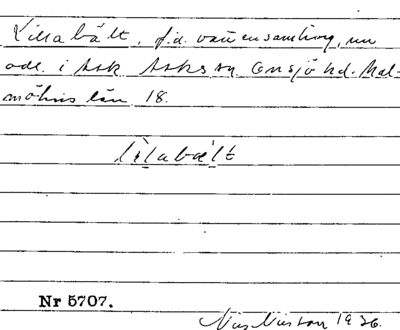 Lillabält, f.d. vattensamling, nu
odl. i Ask Asks sn. Onsjö hd. Mal-
möhus län. 18.
lìlabæ̀lt
Nr 5707.
1926.